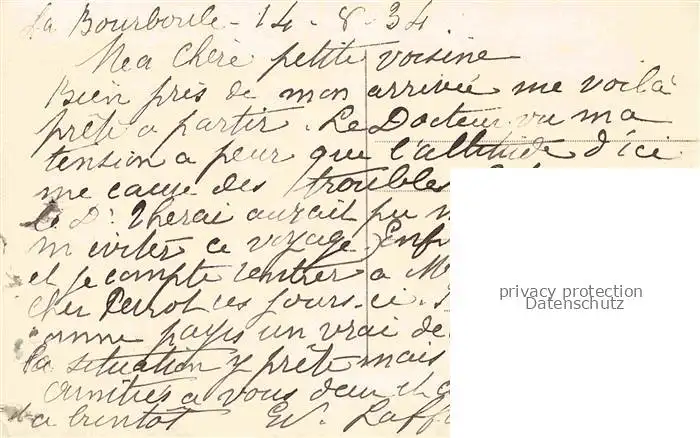 La Bourboule - 14 - 8 - 34
Ma chère petite voisine
Bien près de mon arrivée me voilà
prête a partir. Le Docteur vu ma
tension a peur que l'altitude d'ici
me cause des troubles
Le Dr aurait pu
m'eviter ce voyage. Enf
et je compte rentrer a M
cher Perrot ces jours-ci.
comme pays un vrai de
la situation y prête mais
amitiés a vous deux et a
a bientôt Laff
privacy protection
Datenschutz